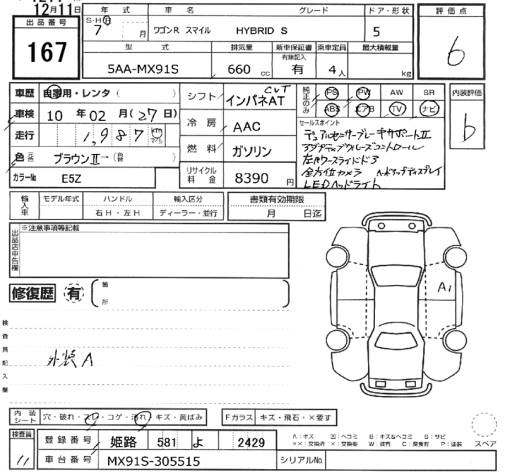 12月11日
出品番号
167
S・H
7
年 式
月
車 名
グレード
ワゴンR スマイル HYBRID S
ドア・形状
5
型 式
5AA-MX91S
排気量
660 cc
新車保証書
有無記入
有
乗車定員
4人
最大積載量
kg
評 価 点
6
車歴 自家用・レンタ( )
車検 10年 02月(27日)
走行 1,987 km
色 ブラウンII→( )
カラーNo E5Z
シフト インパネAT CVT
冷 房 AAC
燃 料 ガソリン
リサイクル料金 8390 円
純正のみ
PS PW AW SR
ABS エアB TV ナビ
セールスポイント
デュアルセンサーブレーキサポートII
アダプティブクルーズコントロール
左右パワースライドドア
全方位カメラ ヘッドアップディスプレイ
LEDヘッドライト
内装評価
b
輸入車
モデル年式
ハンドル
右H・左H
輸入区分
ディーラー・並行
書類有効期限
月 日迄
出品店申告欄
※注意事項等記載
修復歴 有
箇所
検査員記入欄
外装A
A1
内装シート
穴・破れ・スレ・コゲ・汚れ・キズ・黄ばみ
Fガラス キズ・飛石・×要す
検査員
11
登録番号 姫路 581 よ 2429
車台番号 MX91S-305515
シリアルNo.
A:キズ
B:キズ&ヘコミ S:サビ
スペア